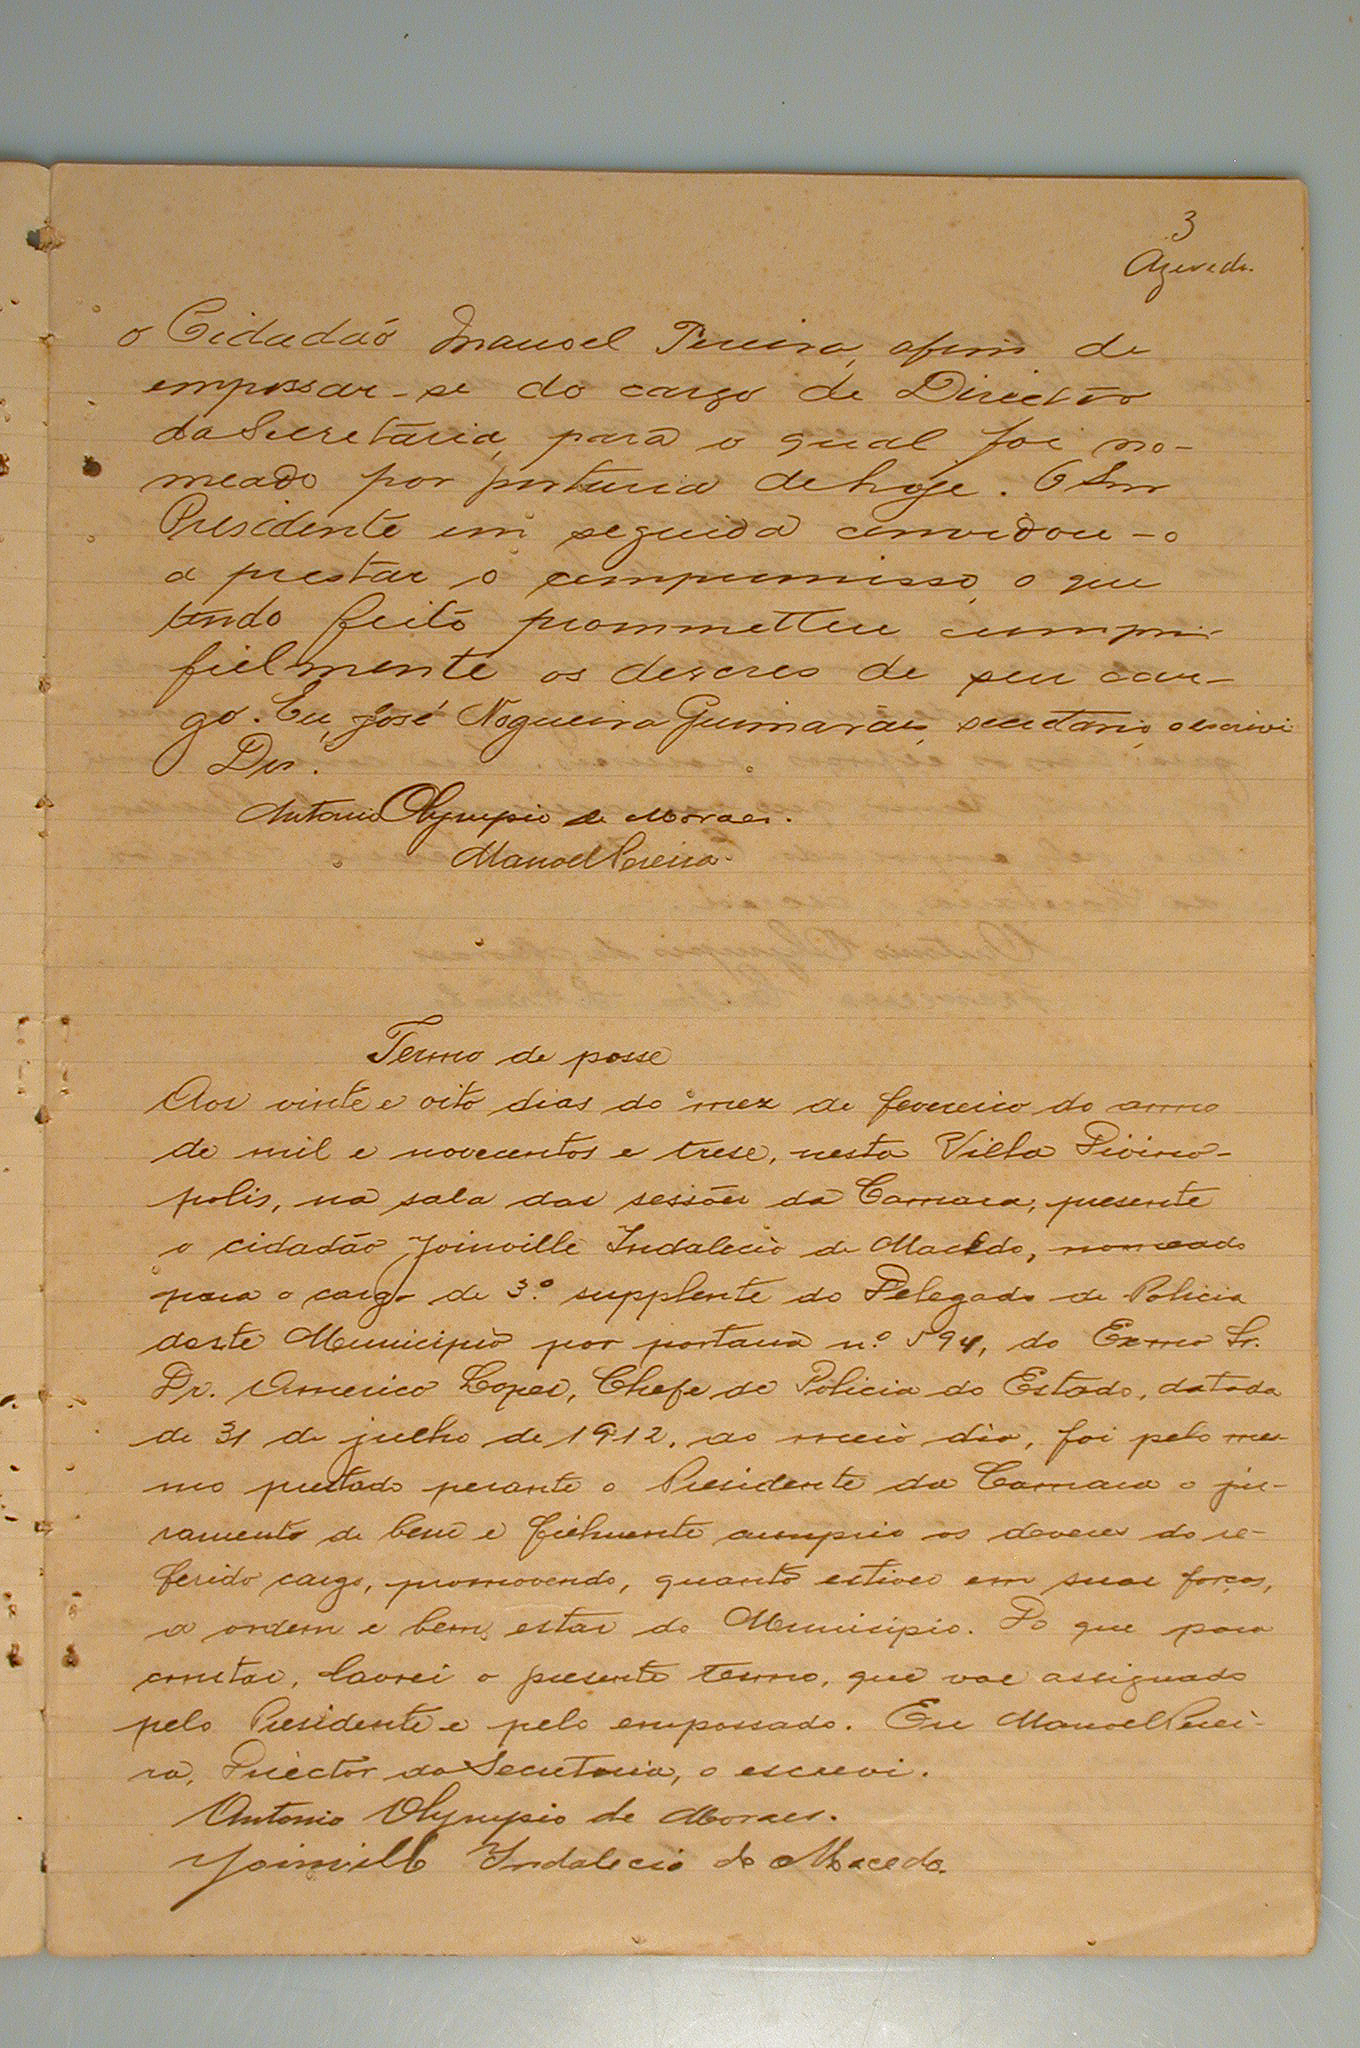 3
Azevedo.
o Cidadão Manoel Pereira, afim de
empossar-se do cargo de Director
da Secretaria, para o qual foi no-
meado por portaria de hoje. O Snr
Presidente em seguida convidou-o
a prestar o compromisso, o que
tendo feito prommetteu cumprir
fielmente os deveres de seu car-
go. Eu, José Nogueira Guimarães, secretario, o escrivi
Antonio Olympio de Moraes.
Manoel Pereira.
Termo de posse
Aos vinte e oito dias do mez de fevereiro do anno
de mil e novecentos e trese, nesta Villa Divino-
polis, na sala das sessões da Camara, presente
o cidadão Joinville Indalecio de Macedo, nomeado
para o cargo de 3.º supplente do Delegado de Policia
deste Municipio por portaria n.º 594, do Exmo Sr.
Dr. Americo Lopes, Chefe de Policia do Estado, datada
de 31 de julho de 1912, ao meio dia, foi pelo mes-
mo prestado perante o Presidente da Camara o ju-
ramento de bem e fielmente cumprir os deveres do re-
ferido cargo, promovendo, quanto estiver em suas forças,
a ordem e bem estar do Municipio. Do que para
constar, lavrei o presente termo, que vae assignado
pelo Presidente e pelo empossado. Eu Manoel Perei-
ra, Director da Secretaria, o escrevi.
Antonio Olympio de Moraes.
Joinville Indalecio de Macedo.